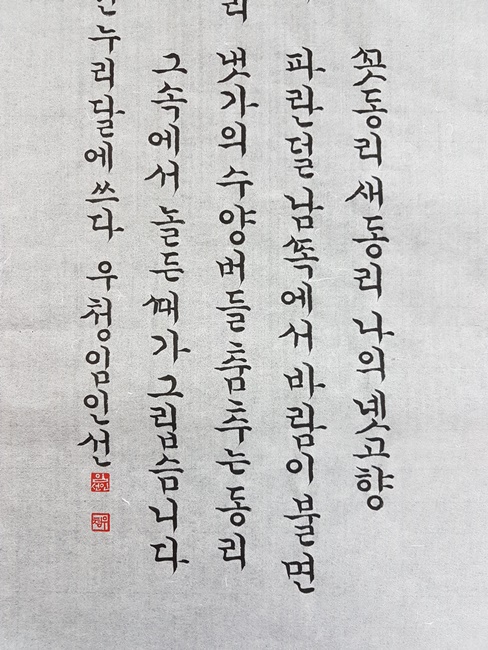 ᄭᅩᆺ동리 새동리 나의 녯고향
파란덜 남ᄶᅩᆨ에서 바람이 불면
리 냇가의 수양버들 춤추는 동리
그속에서 놀든 ᄯᅢ가 그립슴니다
누리달에 쓰다 우청 임인선